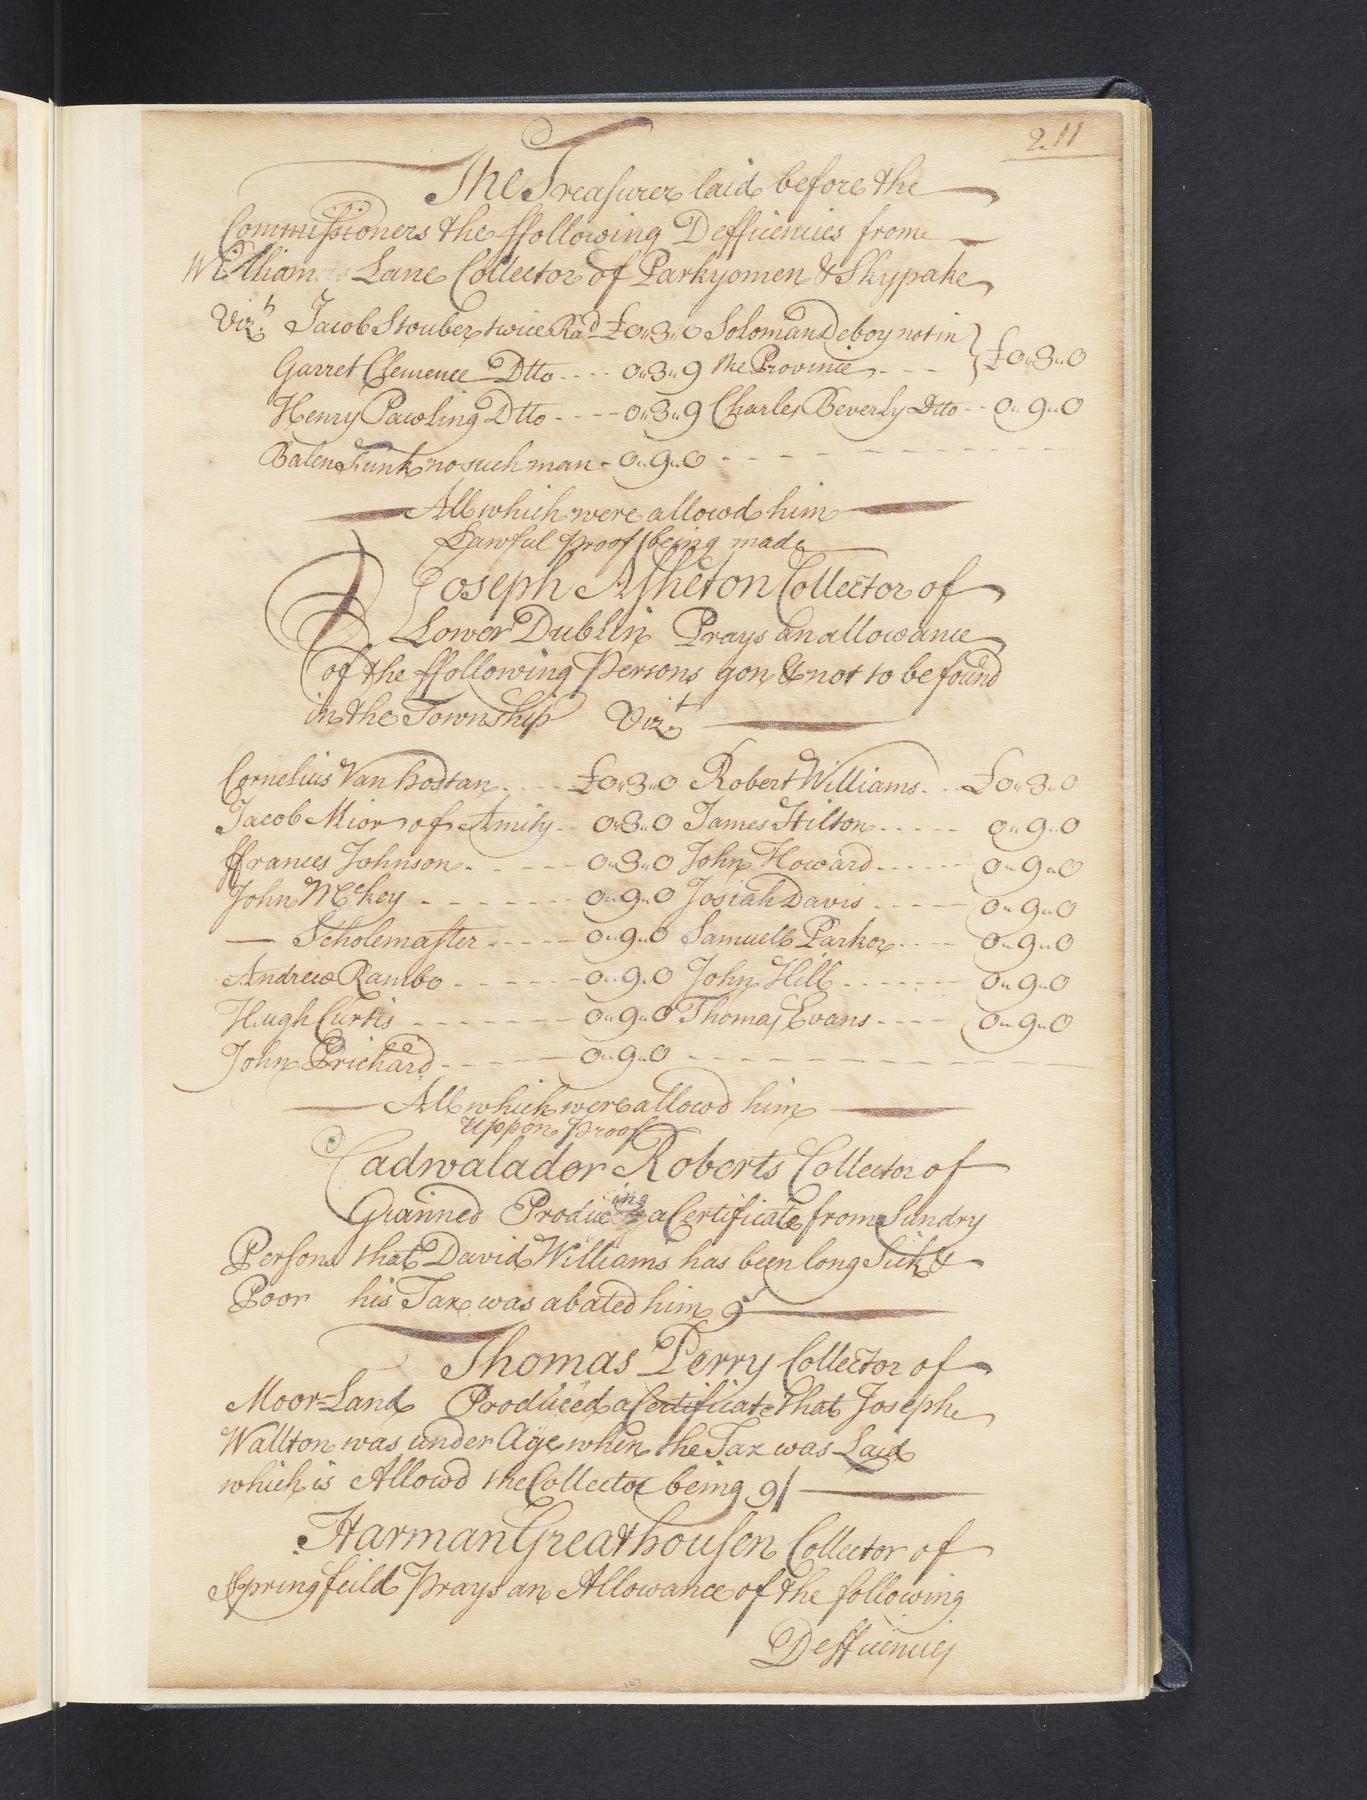 211
The Treasurer laid before the
Commissioners the ffollowing Defficiencies frome
William Lane Collector of Parkyomen & Skypake
Vizt. Jacob Stouber twice Rad £0„3„0 Soloman Deboy not in } £0„3„0
Garret Clemence Dtto - - - - 0„3„9 the Province - - -
Henry Pawling Dtto - - - - 0„3„9 Charles Beverly Dtto - - 0„9„0
Balen Funk no such man - 0„9„0 - - -
All which were allowd him
Lawful Proof being made
Joseph Asheton Collector of
Lower Dublin Prays an allowance
of the ffollowing Persons gon & not to be found
in the Township Vizt.
Cornelius Van hostan - - - £0„3„0 Robert Williams - - - £0„3„0
Jacob Mior of Amity - - 0„3„0 James Hilton - - - - - 0„9„0
ffrances Johnson - - - - - 0„3„0 John Howard - - - - - 0„9„0
John Mckey - - - - - - - 0„9„0 Josiah Davis - - - - - 0„9„0
— Scholemaster - - - - - 0„9„0 Samuell Parkor - - - - 0„9„0
Andrew Rambo - - - - - - 0„9„0 John Hill - - - - - - 0„9„0
Hugh Curtis - - - - - - - 0„9„0 Thomas Evans - - - - 0„9„0
John Prichard - - - - - 0„9„0 - - -
All which were allowd him
Uppon Proof
Cadwalador Roberts Collector of
Gwinned Producing a Certificate from Sundry
Persons that David Williams has been long Sick &
Poor his Tax was abated him 9s
Thomas Perry Collector of
Moor=Land Produced a Certificate that Joseph
Wallton was under Age when the Tax was Laid
which is Allowd the Collector being 9/
Harman Greathousen Collector of
Springfeild Prays an Allowance of the following
Defficiencies